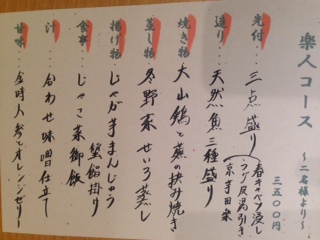 楽人コース
～二名様より～
三五〇〇円
先付…三点盛り
春キャベツ浸し
京芋田楽
造り…天然魚三種盛り
焼き物 大山鶏と蕪の挟み焼き
蒸し物 冬野菜せいろ蒸し
揚げ物 じゃが芋まんじゅう 蟹餡掛け
食事…じゃこ菜御飯
汁…合わせ味噌仕立て
甘味…金時人参とオレンジゼリー